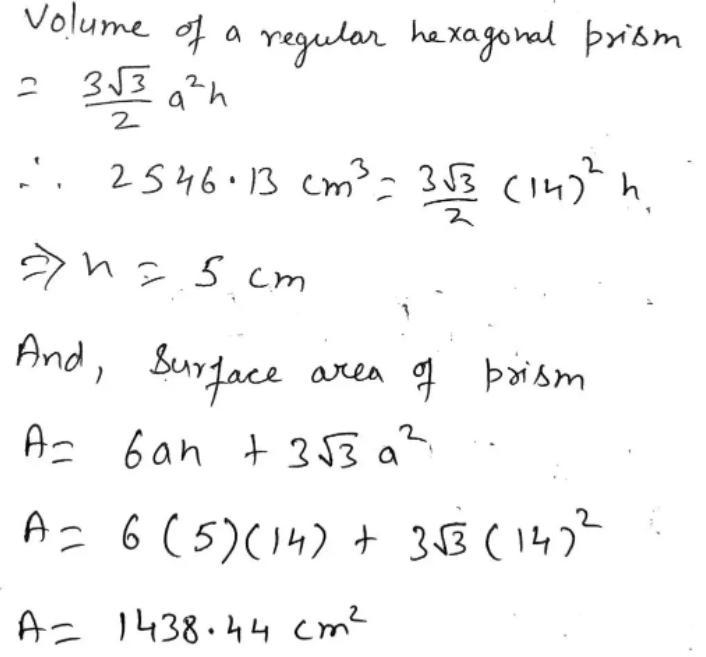 Volume of a regular hexagonal prism
= 3√3/2 a²h
∴ 2546.13 cm³ = 3√3/2 (14)² h
⇒ h = 5 cm
And, Surface area of prism
A = 6ah + 3√3 a²
A = 6(5)(14) + 3√3 (14)²
A = 1438.44 cm²